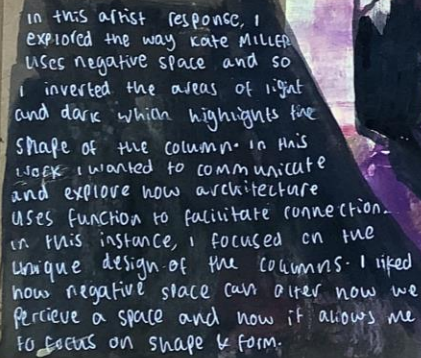 in this artist response, I
explored the way Kate MILLER
uses negative space and so
I inverted the areas of light
and dark which highlights the
shape of the column. In this
work I wanted to communicate
and explore how architecture
uses function to facilitate connection.
in this instance, I focused on the
unique design of the columns. I liked
how negative space can alter how we
percieve a space and how it allows me
to focus on shape & form.